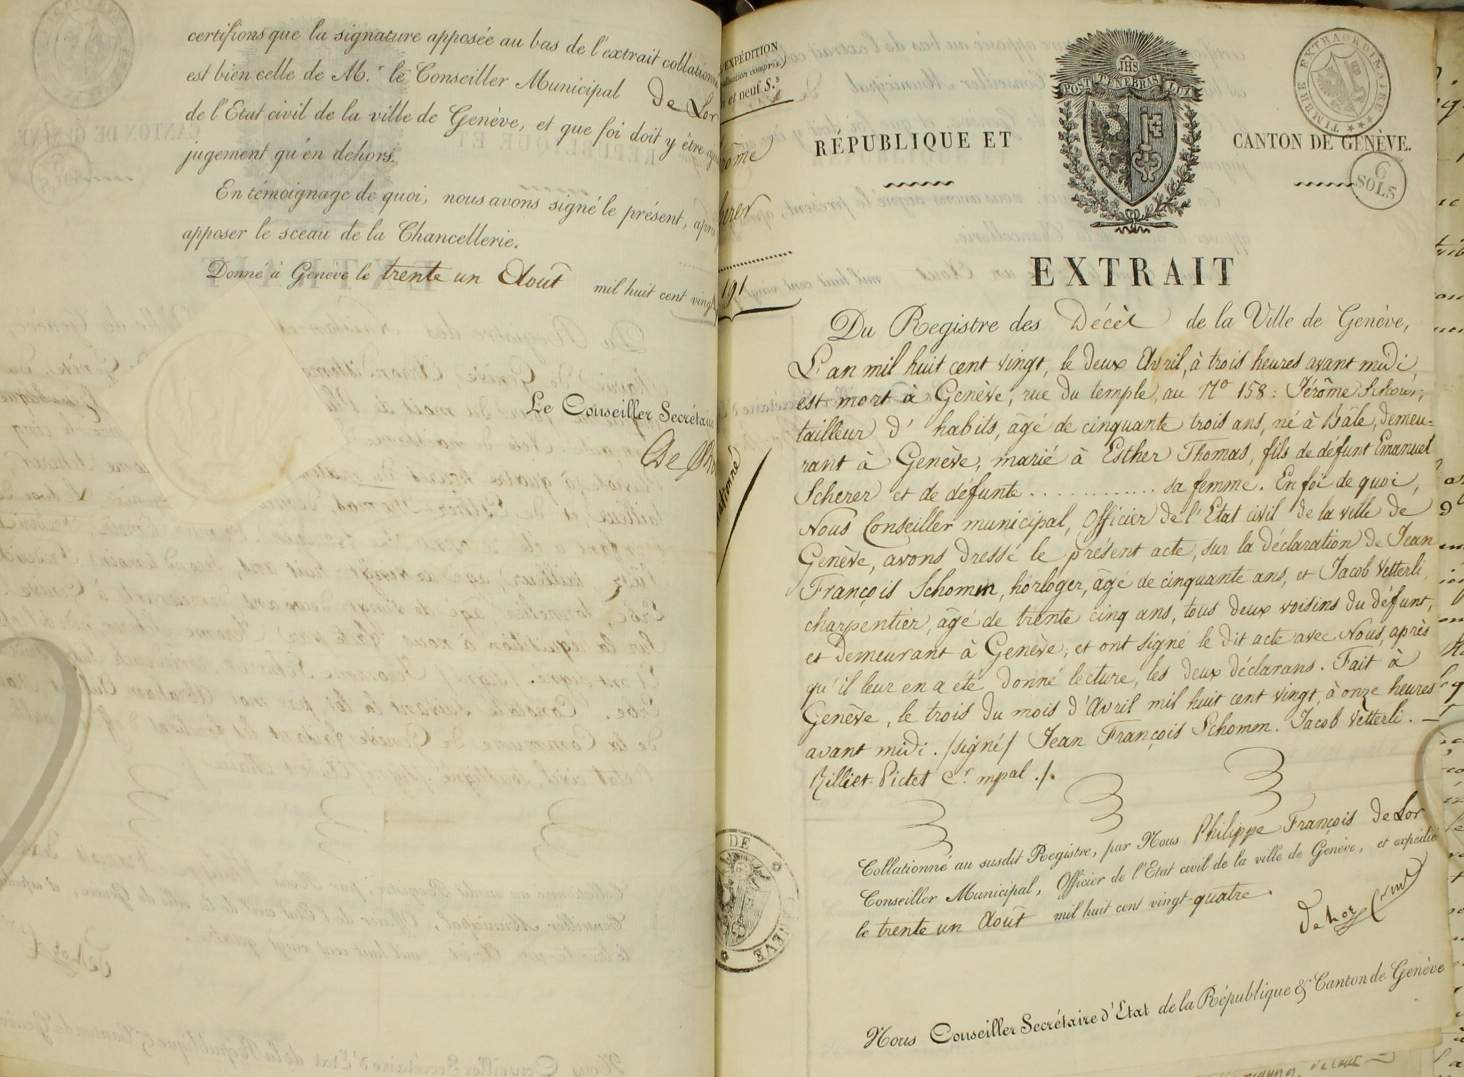 certifions que la signature apposée au bas de l'extrait collationné
est bien celle de M.r le Conseiller Municipal De Lor
de l'Etat civil de la ville de Genève, et que foi doit y être
jugement qu'en dehors.
En témoignage de quoi, nous avons signé le présent, après
apposer le sceau de la Chancellerie.
Donné à Genève le trente un Août mil huit cent vingt
Le Conseiller Secrétaire
EXPÉDITION
et neuf S.s
191
POST TENEBRAS LUX
IHS
TIMBRE EXTRAORDINAIRE
RÉPUBLIQUE ET CANTON DE GENÈVE.
6
SOLS
EXTRAIT
Du Registre des Décès de la Ville de Genève,
L'an mil huit cent vingt, le deux Avril, à trois heures avant midi,
est mort à Genève, rue du temple, au No 158: Jérôme Scherer,
tailleur d'habits, âgé de cinquante trois ans, né à Bâle, demeu-
rant à Genève, marié à Esther Thomas, fils de défunt Emanuel
Scherer et de defunte ............ sa femme. En foi de quoi,
Nous Conseiller municipal, Officier de l'Etat civil de la ville de
Genève, avons dressé le présent acte, sur la déclaration de Jean
François Schomm, horloger, âgé de cinquante ans, et Jacob Vetterli,
charpentier, âgé de trente cinq ans, tous deux voisins du défunt,
et demeurant à Genève, et ont signé le dit acte avec Nous, après
qu'il leur en a eté donné lecture, les deux déclarans. Fait à
Genève, le trois du mois d'Avril mil huit cent vingt, à onze heures
avant midi. /signé/ Jean François Schomm. Jacob Vetterli. —
Rilliet-Pictet Cr mpal ./.
Collationné au susdit Registre, par Nous Philippe François De Lor
Conseiller Municipal, Officier de l'Etat civil de la ville de Genève, et expédié
le trente un Août mil huit cent vingt-quatre.
DeLor
DE GENÈVE
Nous Conseiller Secrétaire d'Etat de la République & Canton de Genève